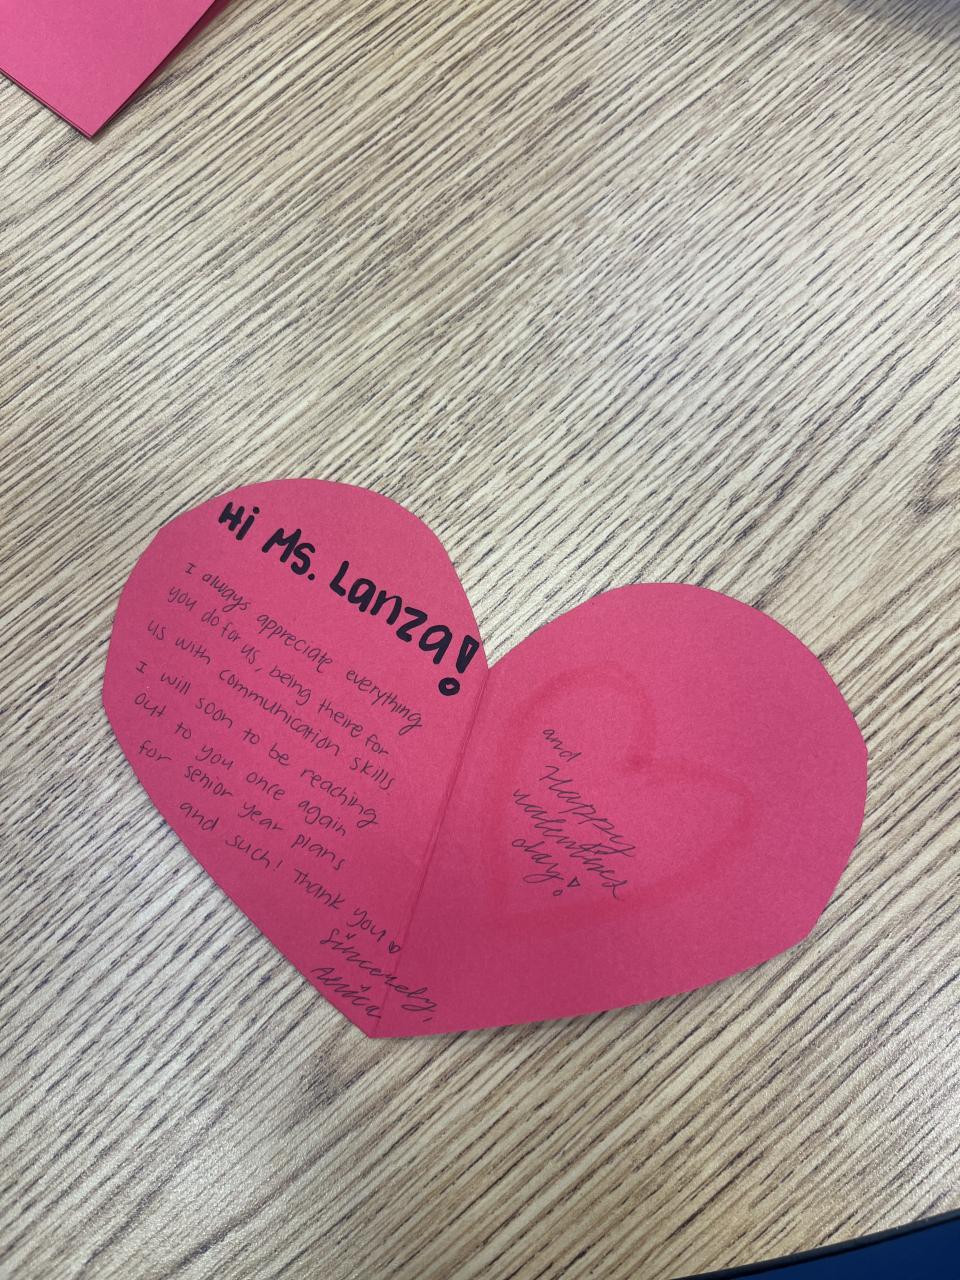 Hi Ms. Lanza!
I always appreciate everything
you do for us, being theire for
us with communication skills.
I will soon to be reaching
out to you once again
for senior year plans
and such! Thank you
Sincerely,
and
Happy
valentines
day!